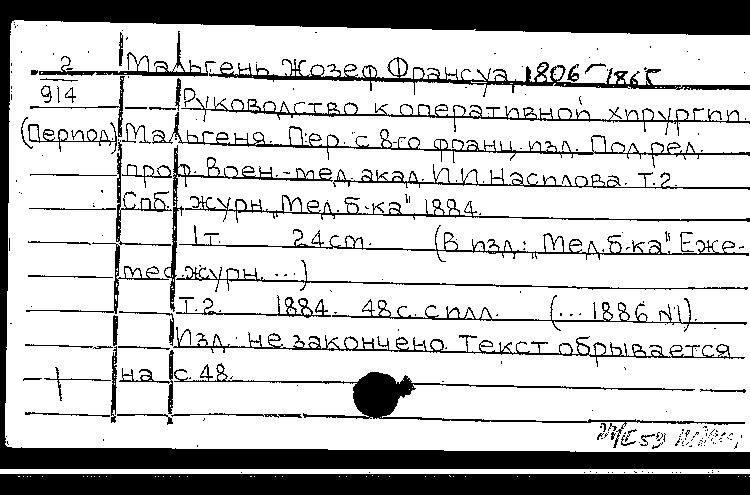 2 Мальгень Жозеф Франсуа, 1806-1865
914 Руководство к оперативной хирургии
(Период) Мальгеня. Пер. с 8-го франц. изд. Под ред.
проф. Воен.-мед. акад. И.И. Насилова. Т.2.
Спб., журн. „Мед. б-ка", 1884.
1 т. 24 cm. (В изд.: „Мед. б-ка". Еже-
мес. журн. ...)
Т.2. 1884. 48 с. с илл. (... 1886 №1).
Изд. не закончено. Текст обрывается
1 на с. 48.
59